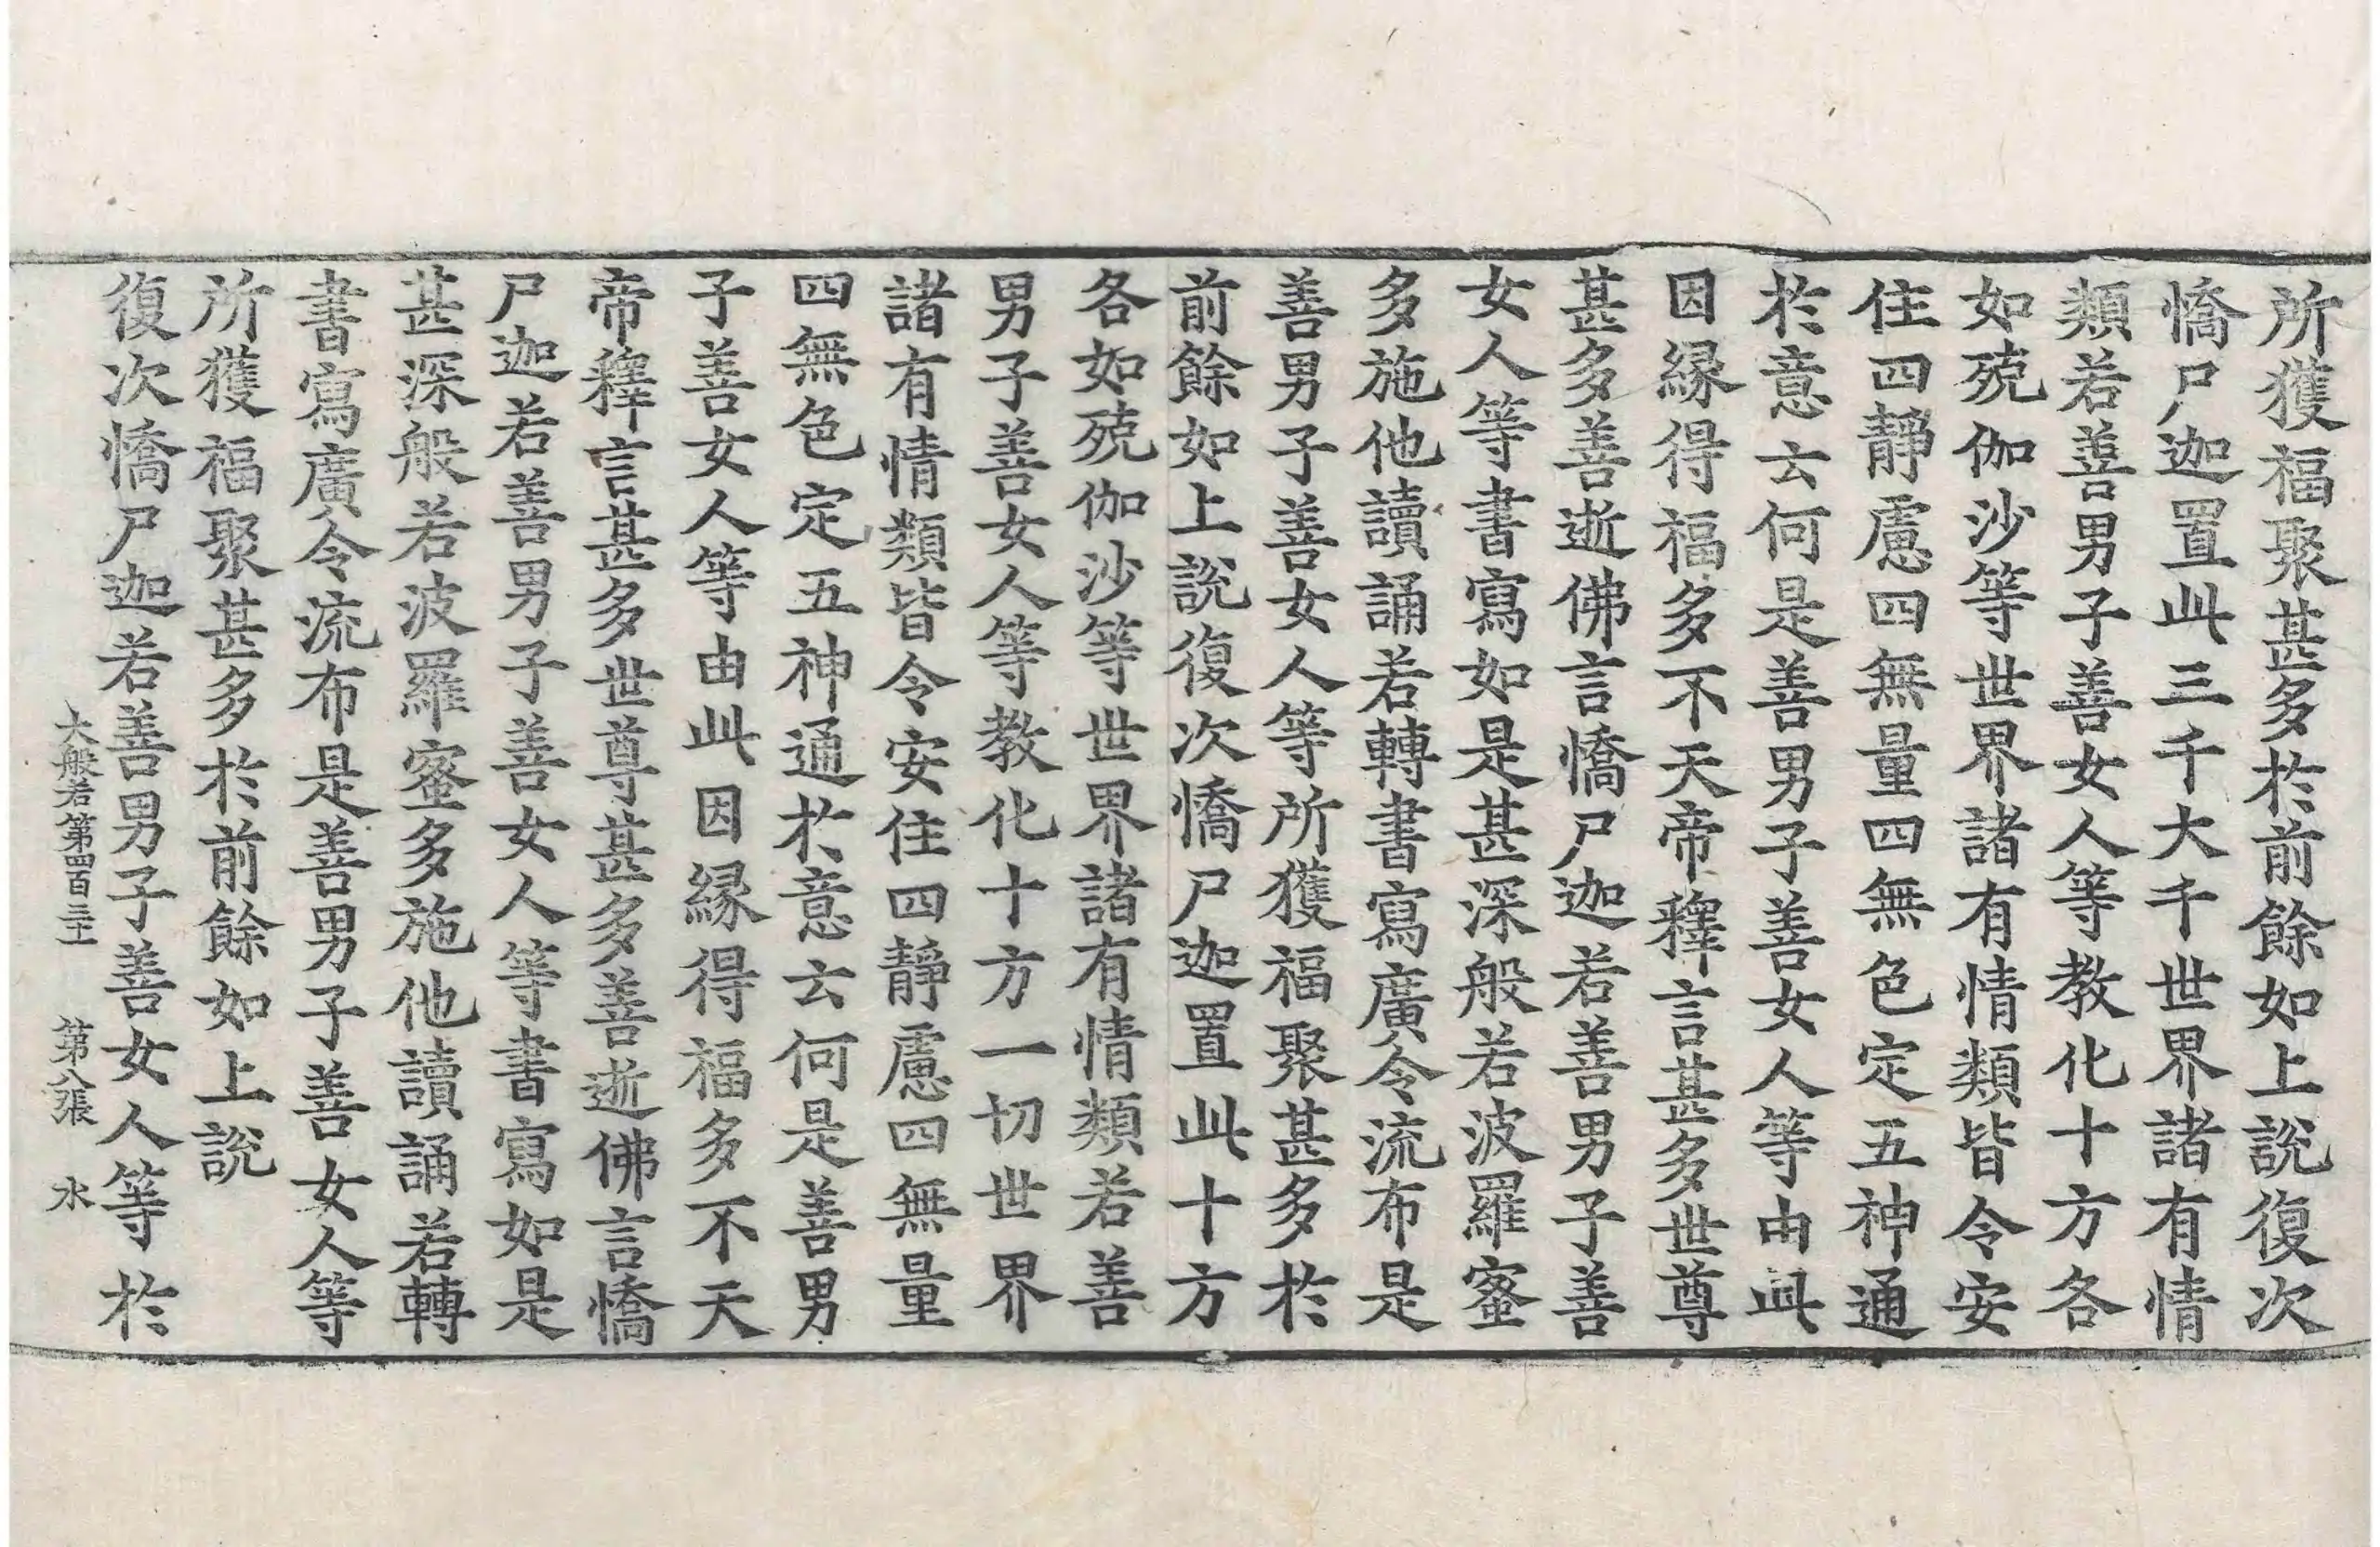 所獲福聚甚多於前餘如上說復次
憍尸迦置此三千大千世界諸有情
類若善男子善女人等教化十方各
如殑伽沙等世界諸有情類皆令安
住四靜慮四無量四無色定五神通
於意云何是善男子善女人等由此
因緣得福多不天帝釋言甚多世尊
甚多善逝佛言憍尸迦若善男子善
女人等書寫如是甚深般若波羅蜜
多施他讀誦若轉書寫廣令流布是
善男子善女人等所獲福聚甚多於
前餘如上說復次憍尸迦置此十方
各如殑伽沙等世界諸有情類若善
男子善女人等教化十方一切世界
諸有情類皆令安住四靜慮四無量
四無色定五神通於意云何是善男
子善女人等由此因緣得福多不天
帝釋言甚多世尊甚多善逝佛言憍
尸迦若善男子善女人等書寫如是
甚深般若波羅蜜多施他讀誦若轉
書寫廣令流布是善男子善女人等
所獲福聚甚多於前餘如上說
復次憍尸迦若善男子善女人等於
大般若第四百三十一 第八張 水